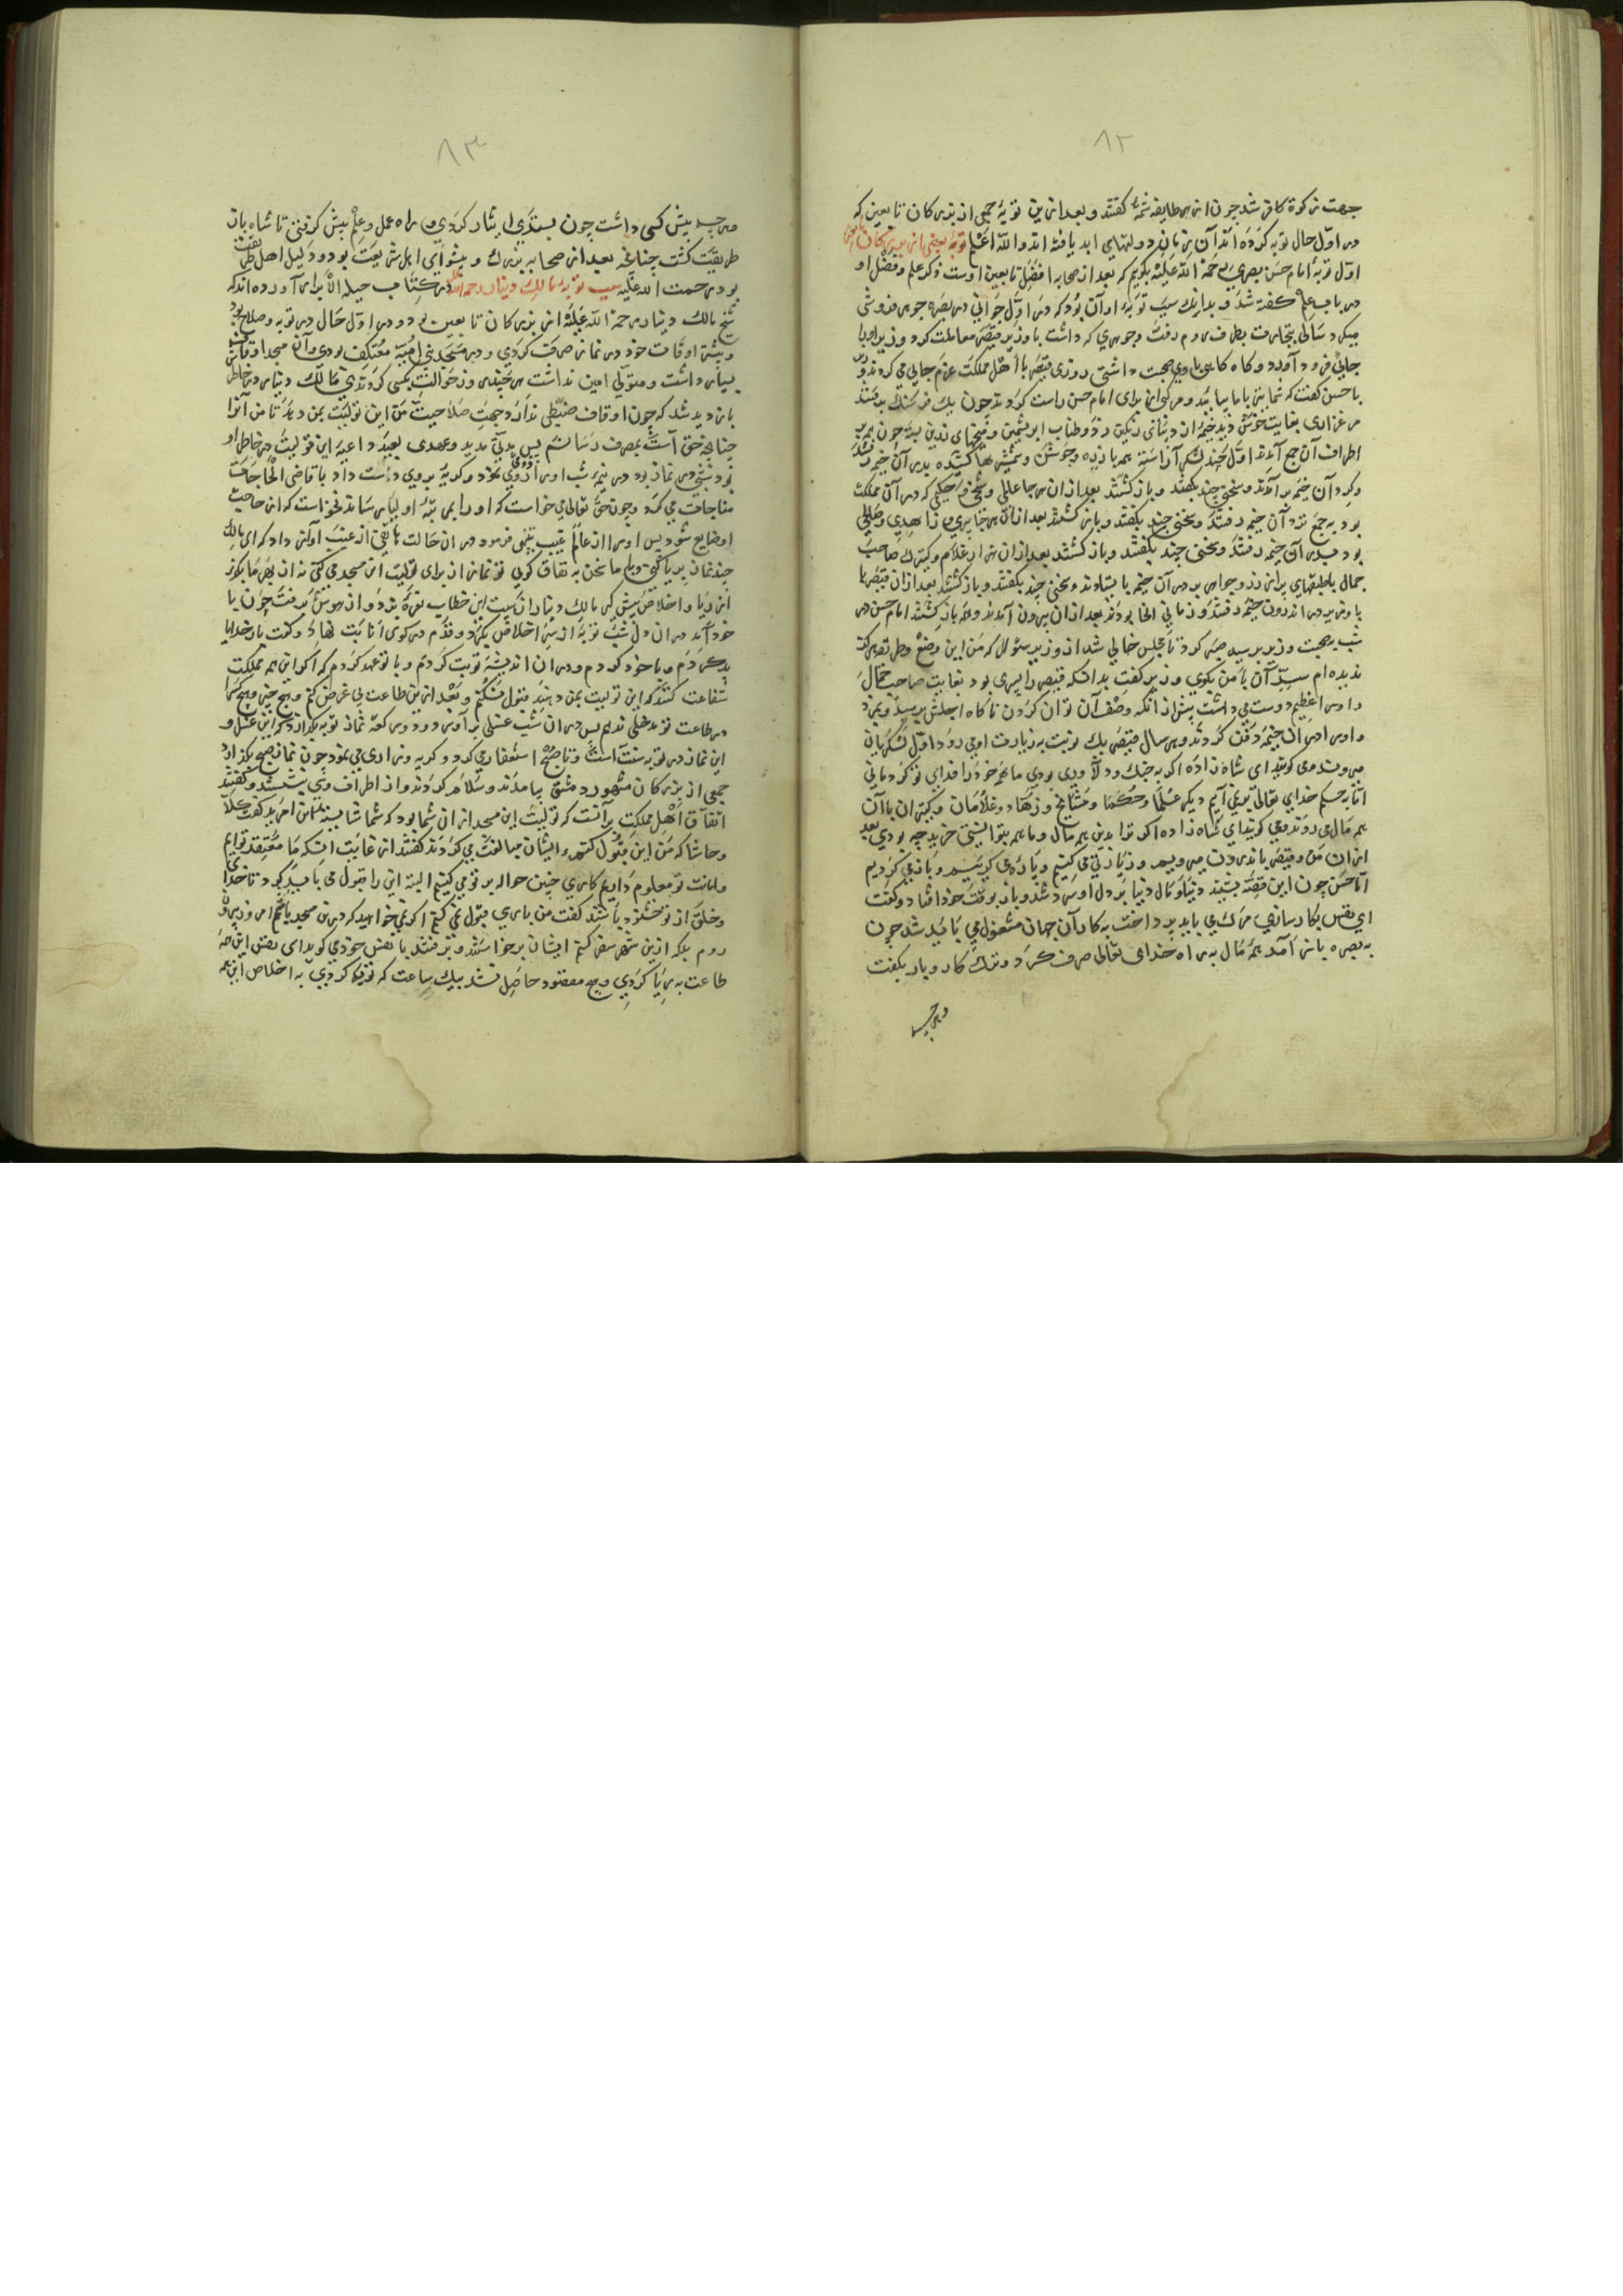 ٨٢
جهت زکوة کافر شد چون ازین طایفه شمهٔ گفتند و بعد ازین توبهٔ جمعی از بزرکان تابعین که
در اوّل حال توبه کرده اند آن نیز یاد کرد و لتهای ابد یافته اند والله اعلم توبهٔ بعضی از بزرکان تابعین
اوّل توبهٔ امام حسن بصری رحمة الله علیه بکویم که بعد از صحابه افضل تابعین اوست ذکر علم و فضل او
در باب علم کفته شد و بدانک سبب توبهٔ او آن بود که در اوّل جوانی در بصره جوهر فروشی
میکرد سالی بتجارت بطرف روم رفت و جوهری که داشت با وزیر قیصر معاملت کرد و وزیر او را
جایی فرود آورد و کاه کاهی با وی صحبت داشتی روزی قیصر با اهل مملکت عزم جایی می کردند وزیر
با حسن کفت که شما نیز با ما بیایید و مرکبی از برای امام حسن راست کردند چون یک فرسنک برفتند
مرغزاری بغایت خوش دید خیمهٔ از دیبای رنکین زده و طناب ابریشمین و میخهای زرین بسته چون همه بر
اطراف آن جمع آمدند اوّل چند لشکر آراسته همه با زره و جوشن و شمشیرها کشیده بدر آن خیمه شدند
و کرد آن خیمه بر آمدند و سخنی چند بکفتند و باز کشتند بعد از آن هر جا عالمی و شیخی و حکیمی که در آن مملکت
بود به جمع نزد آن خیمه رفتند و سخنی چند بکفتند و باز کشتند بعد از آن هر جا پیری و زاهدی و صالحی
بود بدر آن خیمه رفتند و سخنی چند بکفتند و باز کشتند بعد از آن هزار غلام و کنیزک صاحب
جمال با طبقهای پر از زر و جواهر بر در آن خیمه بایستادند و سخنی چند بکفتند و باز کشتند بعد از آن قیصر با
با وزیر در اندرون خیمه رفتند و زمانی آنجا بودند بعد از آن بیرون آمدند و همه باز کشتند امام حسن در
شب بصحبت وزیر برسید صبر کرد تا مجلس خالی شد از وزیر سئوال که من این وضع و طرز هرکز
ندیده ام سرّ آن با من بکوی وزیر کفت بدانکه قیصر را پسری بود بغایت صاحب جمال
و او را عظیم دوست می داشت پیش از آنکه وصف آن توان کردن ناکاه اجلش برسید و بمرد
و او را در آن خیمه دفن کردند و هر سال قیصر یک نوبت به زیارت او می رود اوّل لشکریان
میروند می کویند ای شاه زاده اکر به جنک و دلاوری بودی ما همه خود را فدای تو کردمانی
امّا به حکم خدای تعالی بر نمی آییم دیکر علما و حکما و مشایخ و زهّاد و غلامان و کنیزان با آن
همه مال می روند و می کویند ای شاه زاده اکر ترا بدین همه مال و ما همه بتوانستی خرید چه بودی بعد
از آن من و قیصر باندرون میرویم و زیارتی می کنیم و پارهٔ می کریییم و باز می کردیم
امّا حسن چون این قصّه بشنید دنیا و مال دنیا بر دل او سرد شد و باز بوقت خود افتاد و کفت
ای نفس بکار سازی مرک می باید پرداخت به کار آن جهان مشغول می باید شد چون
به بصره باز آمد همه مال به راه خدای تعالی صرف کرد و ترک کار و بار بکفت
و هرچه
٨٣
و هرچه پیش کسی داشت چون بستدی ایثار کردی و راه عمل و علم پیش کرفتی تا شاه باز
طریقت کشت چنانچه بعد از صحابه بزرک و پیشوای اهل شریعت بود و دلیل اهل طریقت
بود رحمت الله علیه سبب توبه مالک دینار رحمه الله در کتاب حیلة الابرار آورده اند که
شیخ مالک دینار رحمة الله علیه از بزرکان تابعین بود و در اوّل حال در توبه و صلاح بود
و بیشتر اوقات خود در نماز صرف کردی و در مسجد بنی امیّه معتکف بودی و آن مسجد اوقاف
بسیار داشت و متولّی امین نداشت هر چندی و ز حوالت بکسی کردندی مالک دینار در خاطر
باز دید شد که چون اوقاف ضبطی ندارد و جهت صلاحیت من این تولیت بمن دهند تا من آنرا
چنانچه حق آنست بمصرف رسانم پس مدتی مدید و عهدی بعید داعیهٔ این تولیت در خاطر او
بود شبی در نماز بود در نیم شب او را ذوقی بنمود و کریه بر وی دست داد با قاضی الحاجات
مناجات می کرد و چون حق تعالی می خواست که او را بمرتبهٔ اولیا رساند نخواست که از حاجت
او ضایع شود پس او را از عالم غیب تنبیهی فرمود در آن حالت هاتفی از غیب آواز داد که ای مالک
چند نماز بریا کنی و با ما سخن به نفاق کویی تو نماز از برای تولیت این مسجد می کنی نه از بهر ما یکروز
از ریا و اخلاص پیش کیر مالک دینار از هیبت این خطاب نعرهٔ بزد و از هوش برفت چون با
خود آمد در آن دل شب توبهٔ از سر اخلاص بکرد و قدم در کوی انابت نهاد و کفت بار خدایا
بد کردم و با خود کردم و در آن اندیشه توبت کردم و با تو عهد کردم که اکر این همه مملکت
شفاعت کنند که این تولیت بمن دهند قبول نکنم و بعد ازین طاعت بی غرض کنم و هیچ چیز و هیچ کس را
در طاعت تو مدخلی ندهم پس در آن شب غسلی بر آورد و دو رکعت نماز توبه بکزارد که این غسل و
این نماز در توبه سنّت است و تا صبح استغفار می کرد و کریه و زاری می نمود چون نماز صبح بکزارد
جمعی از بزرکان مشهور دمشق بیامدند و سلام کردند و از اطراف وی بنشستند و کفتند
اتفاق اهل مملکت بر آنست که تولیت این مسجد از آن شما بود که شما شایستهٔ این امرید کفت کلّا
و حاشا که من این قبول کنم و ایشان مبالغت می کردند کفتند از غایت آنکه ما معتقد توایم
و امانت تو معلوم داریم کاری چنین حواله بر تو می کنیم البته این را قبول می باید کرد تا خدای
و خلق از تو خشنود باشند کفت من باری قبول نمی کنم اکر نمی خواهید که درین مسجد باشم امروز بیرون
روم بلکه ازین شهر سفر کنم ایشان برخواستند و برفتند با نفس خود می کوید ای نفس این همه
طاعت به ریا کردی و هیچ مقصود حاصل نشد بیک ساعت که توبهٔ کردی به اخلاص این همه